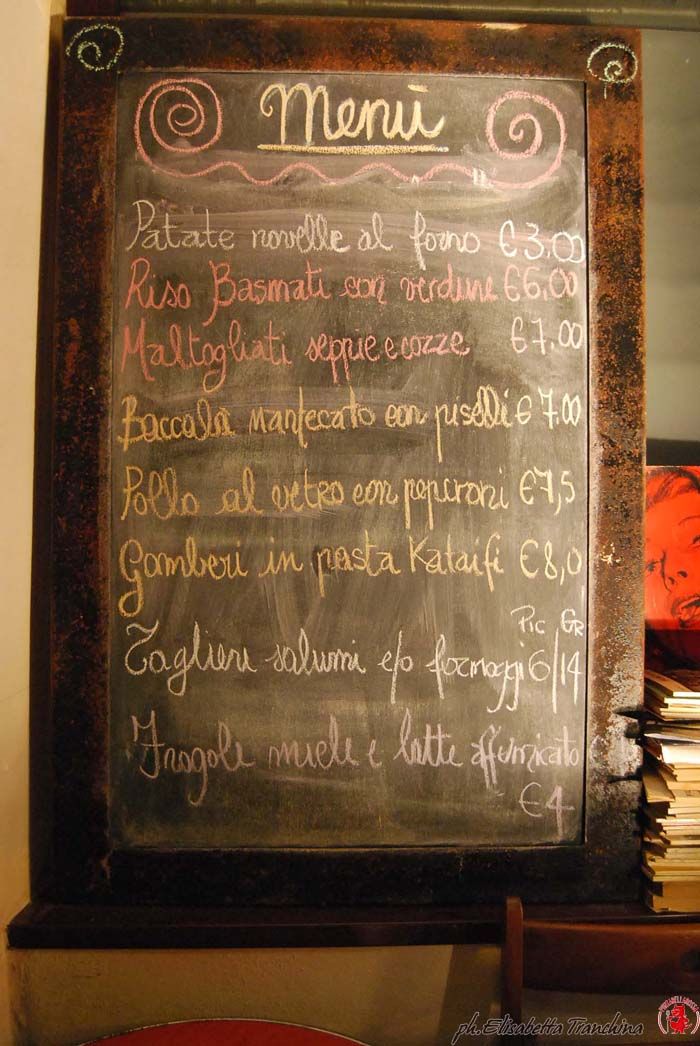 Menù
Patate novelle al forno €3.00
Riso Basmati con verdure €6.00
Maltogliati seppie e cozze €7.00
Baccalà mantecato con piselli €7.00
Pollo al vetro con peperoni €7,5
Gamberi in pasta Kataifi €8,0
Pic Gr
Taglieri salumi e/o formaggi 6/14
Fragole miele e latte affumicato
€4
ph.Elisabetta Tranchina